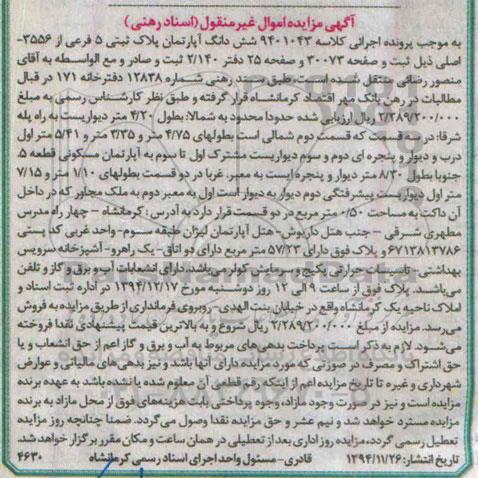 آگهی مزایده اموال غیرمنقول (اسناد رهنی)
به موجب پرونده اجرائی کلاسه ۹۴۰۱۰۴۳ شش دانگ آپارتمان پلاک ثبتی ۵ فرعی از ۳۵۵۶-
اصلی ذیل ثبت و صفحه ۳۰۰۷۳ و صفحه ۲۵ دفتر ۲/۱۴۰ ثبت و صادر و مع الواسطه به آقای
منصور رضائی منتقل شده است، طبق سند رهنی شماره ۱۲۸۳۸ دفترخانه ۱۷۱ در قبال
مطالبات در رهن بانک مهر اقتصاد کرمانشاه قرار گرفته و طبق نظر کارشناس رسمی به مبلغ
۲/۲۸۹/۲۰۰/۰۰۰ ریال ارزیابی شده حدودا محدود به شمالا: بطول ۴/۲۰ متر دیواریست به راه پله
شرقا: در سه قسمت که قسمت دوم شمالی است بطولهای ۴/۷۵ متر و ۳/۳۵ متر و ۵/۴۱ متر اول
درب و دیوار و پنجره ای دوم و سوم دیواریست مشترک اول تا سوم به آپارتمان مسکونی قطعه ۵.
جنوبا بطول ۸/۳۰ متر دیوار و پنجره ایست به معبر. غربا در دو قسمت بطولهای ۱/۱۰ متر و ۷/۱۵
متر اول دیواریست پیشرفتگی دوم دیوار به دیوار است اول به معبر دوم به ملک مجاور که در داخل
آن داکت به مساحت ۰/۵۰ متر مربع در دو قسمت قرار دارد به آدرس: کرمانشاه – چهار راه مدرس
مطهری شرقی – جنب هتل داریوش-هتل آپارتمان لیزان طبقه سوم-واحد غربی کد پستی
۶۷۱۳۸۱۳۷۸۶ و پلاک فوق دارای ۵۷/۲۳ متر مربع دارای دو اتاق- یک راهرو- آشپزخانه سرویس
بهداشتی- تاسیسات حرارتی پکیج و سرمایش کولر می‌باشد. دارای انشعابات آب و برق و گاز و تلفن
می‌باشد. پلاک فوق از ساعت ۹ الی ۱۲ روز دوشنبه مورخ ۱۳۹۴/۱۲/۱۷ در اداره ثبت اسناد و
املاک ناحیه یک کرمانشاه واقع در خیابان بنت الهدی- روبروی فرمانداری از طریق مزایده به فروش
می‌رسد. مزایده از مبلغ ۲/۲۸۹/۲۰۰/۰۰۰ ریال شروع و به بالاترین قیمت پیشنهادی نقدا فروخته
می‌شود. لازم به ذکر است پرداخت بدهی‌های مربوط به آب و برق و گاز اعم از حق انشعاب و یا
حق اشتراک و مصرف در صورتی که مورد مزایده دارای آنها باشد و نیز بدهی‌های مالیاتی و عوارض
شهرداری و غیره تا تاریخ مزایده اعم از اینکه رقم قطعی آن معلوم شده یا نشده باشد به عهده برنده
مزایده است و نیز در صورت وجود مازاد، وجوه پرداختی بابت هزینه‌های فوق از محل مازاد به برنده
مزایده مسترد خواهد شد و نیم عشر و حق مزایده نقدا وصول می‌گردد. ضمنا چنانچه روز مزایده
تعطیل رسمی گردد، مزایده روز اداری بعد از تعطیلی در همان ساعت و مکان مقرر برگزار خواهد شد.
تاریخ انتشار: ۱۳۹۴/۱۱/۲۶ قادری- مسئول واحد اجرای اسناد رسمی کرمانشاه ۴۶۳۰